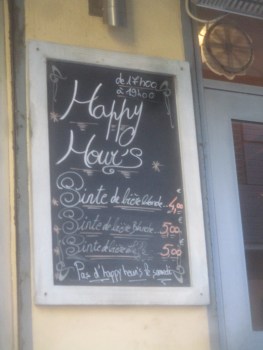 de 17h00
à 19h00
Happy
Hour's
Pinte de bière blonde 4,00 €
Pinte de bière 5,00 €
Pinte de 5,00 €
Pas d'happy hour's le samedi